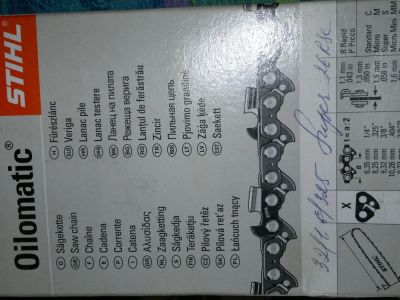 STIHL
Oilomatic®
D Sägekette
GB Saw chain
F Chaîne
E Cadena
P Corrente
I Catena
GR Αλυσίδας
NL Zaagketting
S Sågkedja
FIN Teräketju
CZ Pilový řetěz
SK Pílová reťaz
PL Łańcuch tnący
H Fűrészlánc
Veriga
Lanac pile
Lanac testere
Ланец на пилата
Режеща верига
RO Lanţul de ferăstrău
TR Zincir
Пильная цепь
LT Pjovimo grandinė
LV Zāģa ķēde
EST Saekett
R Rapid
P Picco
Standard
Micro
Super
Micro Mini
1,1 mm
.043 in
1,3 mm
.050 in
1,5 mm
.058 in
1,6 mm
a÷2
1/4"
6,35 mm
.325"
8,25 mm
3/8"
9,32 mm
.404"
10,26 mm
X
STIHL
Super